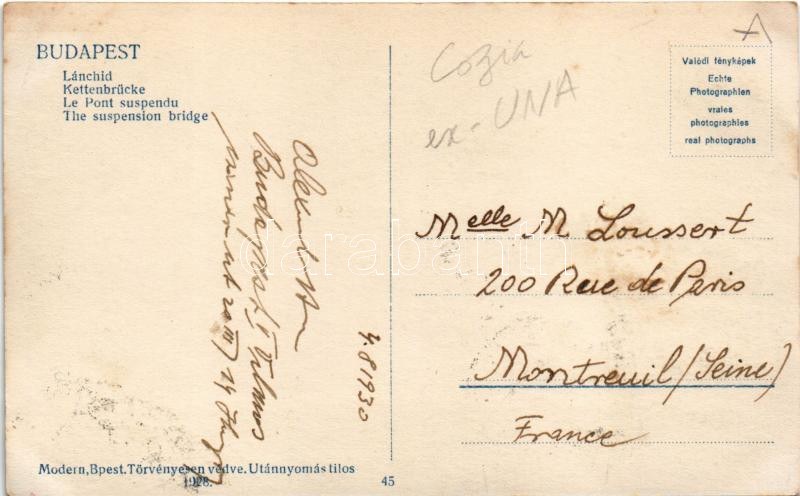 BUDAPEST
Lánchid
Kettenbrücke
Le Pont suspendu
The suspension bridge
Cozia
ex-UNA
Valódi fényképek
Echte
Photographien
vraies
photographies
real photographs
Melle M Loussert
200 Rue de Paris
Montreuil (Seine)
France
4.8 1930
Budapest I Vilmos
darabanth
Modern, Bpest. Törvényesen védve. Utánnyomás tilos
1928.
45